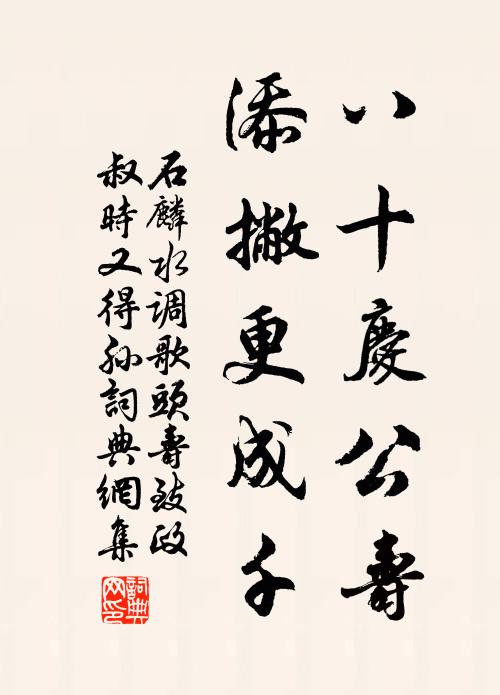 八十慶公壽
添撇更成千
石麟水调歌頭壽致政
叔時又得孙詞典網集
詞典網印